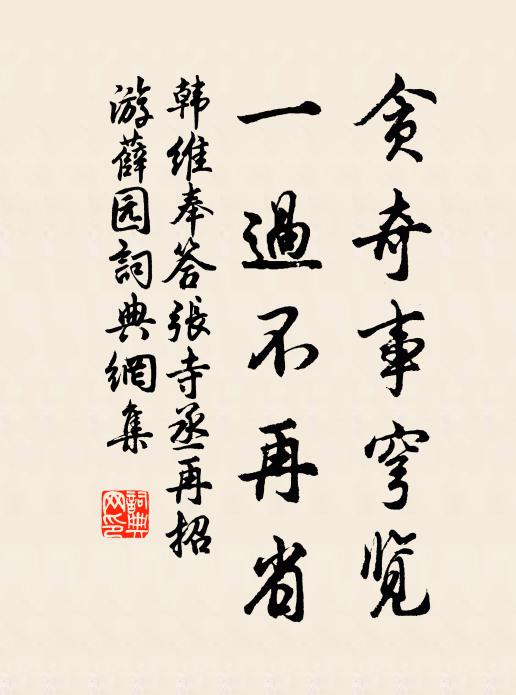 贪奇事穷览
一過不再省
韩维奉答張寺丞再招
游薛园詞典網集
詞典网印